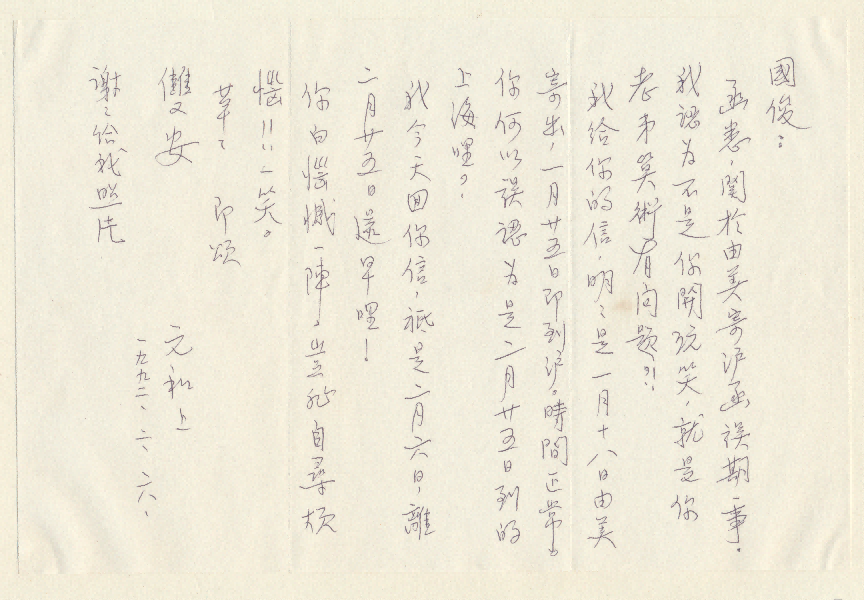 國俊：
函悉，關於由美寄沪函误期事。
我認为不是你開玩笑，就是你
老弟算術有问题？！
我给你的信，明明是一月十八日由美
寄出，一月廿五日即到沪。時間正常。
你何以误認为是二月廿五日到的
上海哩？
我今天回你信，祇是二月六日，離
二月廿五日還早哩！
你白懺一陣，豈非自尋煩
惱！！一笑。
草草 即頌
儷安
元和上
一九九二、二、六、
謝謝给我照片